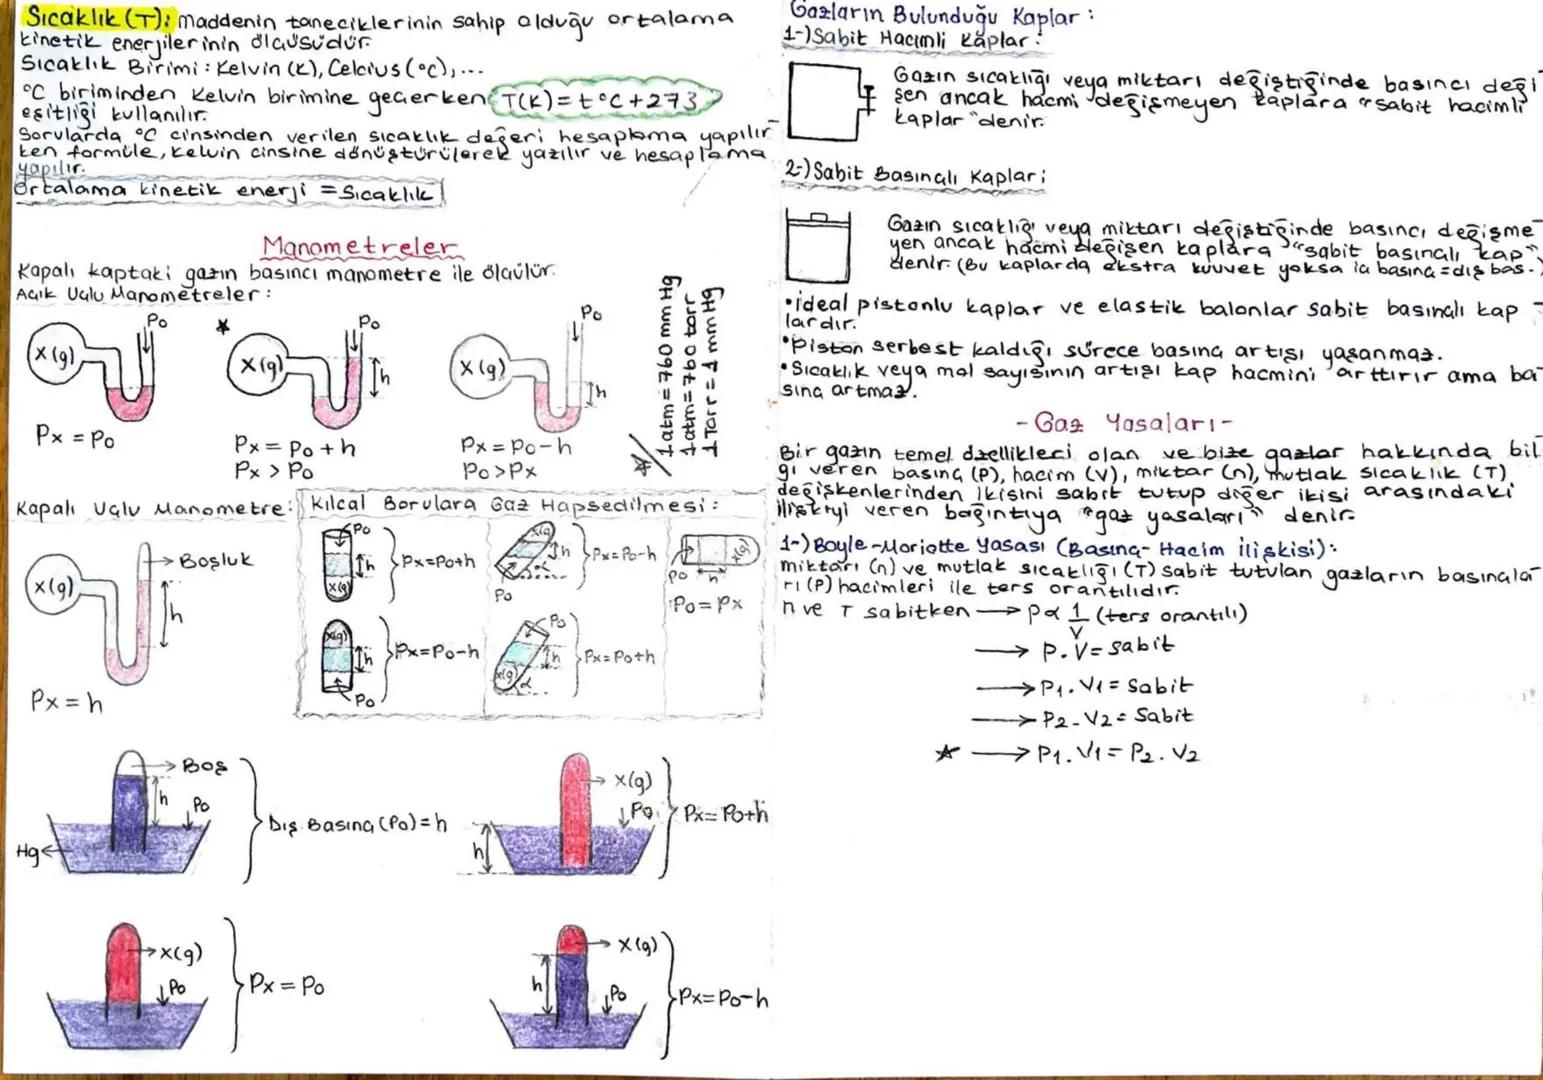 Sıcaklık (T): Maddenin taneciklerinin sahip olduğu ortalama
kinetik enerjilerinin ölçüsüdür.
Sıcaklık Birimi: Kelvin (K), Celcius (°C), ...
°C biriminden Kelvin birimine geçerken T(K) = t°C + 273
eşitliği kullanılır.
Sorularda °C cinsinden verilen sıcaklık değeri hesaplama yapılır
ken formüle, kelvin cinsine dönüştürülerek yazılır ve hesaplama
yapılır.
Ortalama kinetik enerji = Sıcaklık
Manometreler
Kapalı kaptaki gazın basıncı manometre ile ölçülür.
Açık Uçlu Manometreler:
X(g) Po
Px = Po
X(g) Po h
Px = Po + h
Px > Po
X(g) Po h
Px = Po - h
Po > Px
1 atm = 760 mm Hg
1 atm = 760 torr
1 Torr = 1 mm Hg
Kapalı Uçlu Manometre:
X(g) Boşluk h
Px = h
Kılcal Borulara Gaz Hapsedilmesi:
Po h X(g) Px=Po+h
X(g) h Po Px=Po-h
X(g) h α Po Px=Po-h
Po h X(g) α Px=Po+h
Po h X(g)
Po = Px
Boş h Po Hg
Dış Basınç (Po) = h
X(g) Po h
Px = Po+h
X(g) Po
Px = Po
X(g) h Po
Px=Po-h
Gazların Bulunduğu Kaplar:
1-) Sabit Hacimli Kaplar:
Gazın sıcaklığı veya miktarı değiştiğinde basıncı deği
şen ancak hacmi değişmeyen kaplara "sabit hacimli
kaplar" denir.
2-) Sabit Basınçlı Kaplar;
Gazın sıcaklığı veya miktarı değiştiğinde basıncı değişme
yen ancak hacmi değişen kaplara "sabit basınçlı kap"
denir. (Bu kaplarda ekstra kuvvet yoksa iç basınç = dış bas.)
•İdeal pistonlu kaplar ve elastik balonlar sabit basınçlı kap
lardır.
•Piston serbest kaldığı sürece basınç artışı yaşanmaz.
•Sıcaklık veya mol sayısının artışı kap hacmini arttırır ama ba
sınç artmaz.
- Gaz Yasaları -
Bir gazın temel özellikleri olan ve bize gazlar hakkında bil
gi veren basınç (P), hacim (V), miktar (n), mutlak sıcaklık (T)
değişkenlerinden ikisini sabit tutup diğer ikisi arasındaki
ilişkiyi veren bağıntıya "gaz yasaları" denir.
1-) Boyle-Mariotte Yasası (Basınç-Hacim ilişkisi):
miktarı (n) ve mutlak sıcaklığı (T) sabit tutulan gazların basınçla
rı (P) hacimleri ile ters orantılıdır.
n ve T sabitken → P α 1/V (ters orantılı)
→ P.V = sabit
→ P1.V1 = Sabit
→ P2.V2 = Sabit
→ P1.V1 = P2.V2